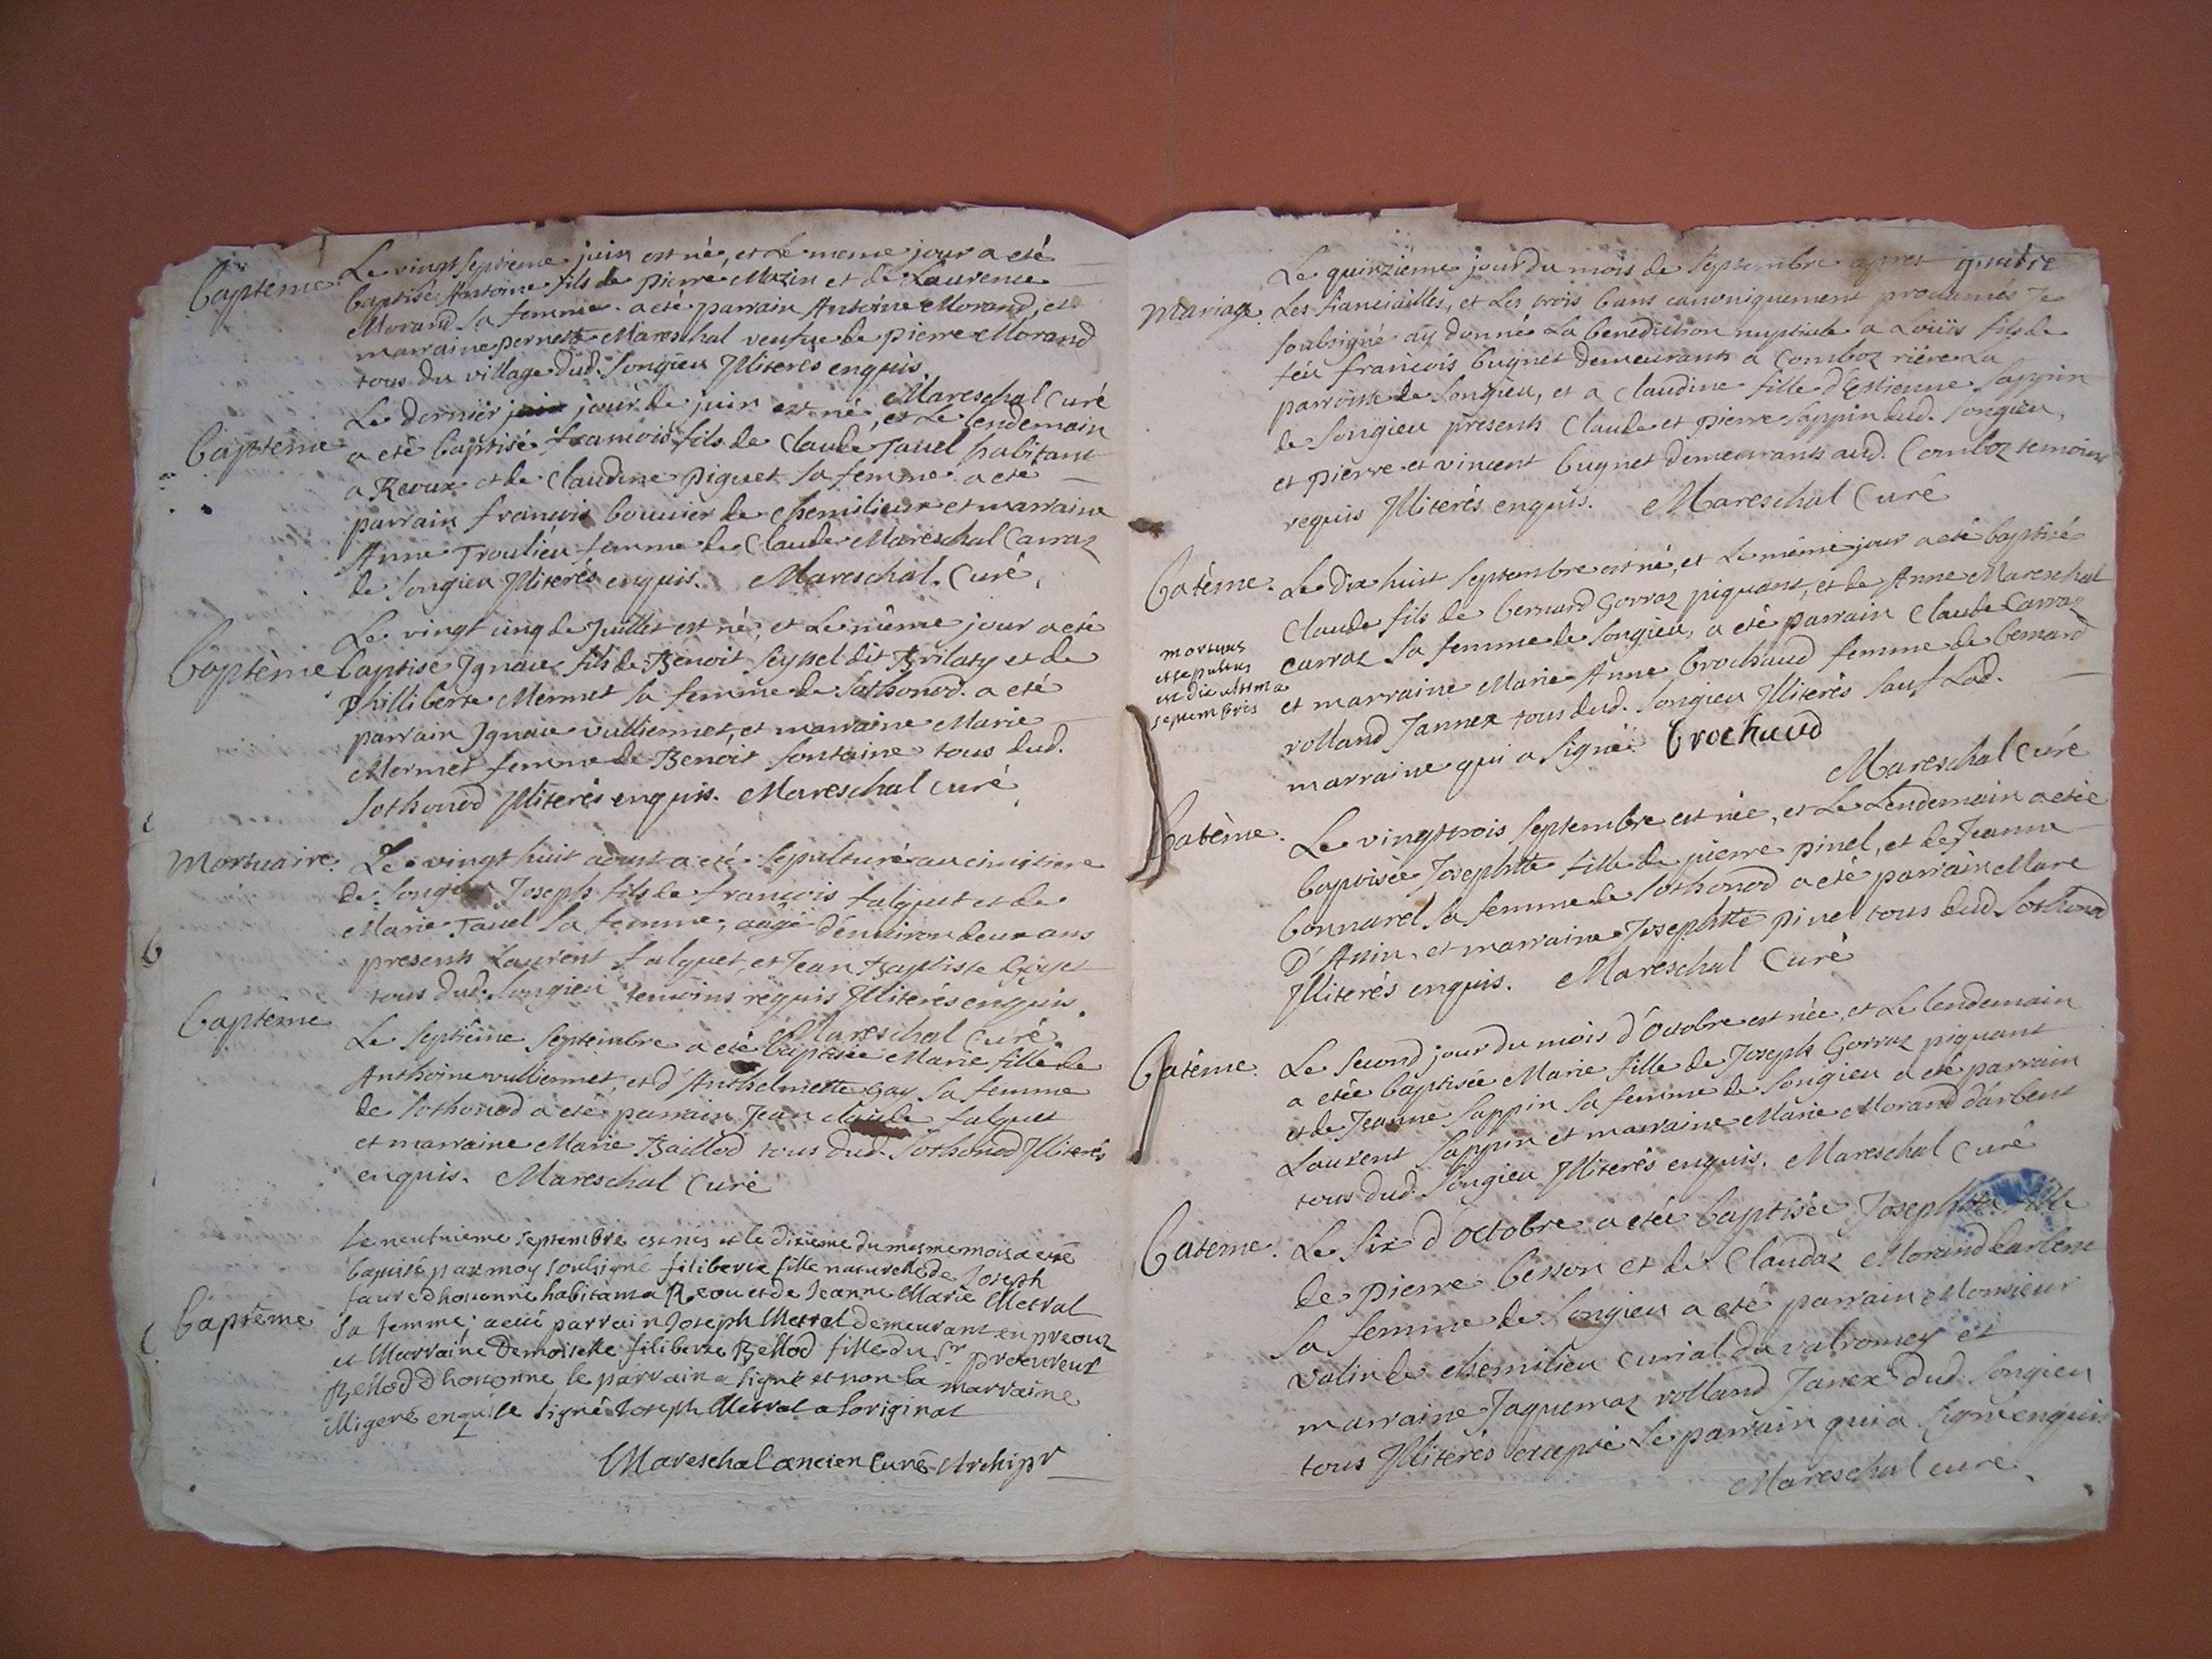 Baptême. Le vingt septieme juin est né, et Le meme jour a eté
baptisé Antoine fils de pierre Mazin et de Laurence
Morand sa femme. a eté parrain Antoine Morand, et
marraine pernette Mareschal veufue de pierre Morand
tous du village dud. Songieu Jlliteres enquis
Mareschal Curé
Baptême Le dernier jour de juin est né, et Le lendemain
a eté baptisé francois fils de Claude Jauel habitant
a Reoux et de Claudine piguet sa femme a eté
parrain francois bouuier de chemilieux et marraine
Anne Troulieu femme de Claude Mareschal Carraz
de Songieu Jlliterés enquis. Mareschal. Curé.
Baptême Le vingt cinq de Juillet est né, et Le même jour a eté
baptisé Jgnace fils de Benoit Seyssel dit Brilaty et de
Philliberte Mermet sa femme de Sothonod. a eté
parrain Jgnace vulliermet, et marraine Marie
Mermet femme de Benoit fontaine tous dud.
Sothonod Jlliterés enquis. Mareschal curé.
Mortuaire. Le vingt huit aoust a eté sepulturé au cimitiere
de Songieu Joseph fils de francois falquet et de
Marie Jauel sa femme, aagé d'enuiron deux ans
presents Laurent falquet, et Jean Baptiste
tous dud. Songieu temoins requis Jlliterés enquis.
Mareschal Curé.
Baptême Le septiême Septembre a eté baptisée Marie fille de
Anthoine vulliermet, et d'Anthelmette Gay sa femme
de Sothonod a eté parrain Jean Claude falquet
et marraine Marie Baillod tous dud. Sothonod Jlliterés
enquis. Mareschal Curé
Le neufuieme Septembre est nes et le dixieme du mesme mois a esté
baptisé par moy soubsigné filiberte fille naturelle de Joseph
faure dhotonne habitant a Reou et de Jeanne Marie Metral
Baptême Sa femme; a eté parrain Joseph Metral demeurant en preoux
et Marraine Demoiselle filiberte Bellod fille du Sr. procureur
Bellod dhotonne le parrain a signé et non la marraine
illigeré enquise signé Joseph Metral a Loriginal
Mareschal ancien Curé Archipr
Le quinzieme jour du mois de Septembre apres
Mariage. Les fianciailles, et Les trois bans canoniquement proclamés Je
soubsigné ay donné La benediction nuptiale a Loüis fils de
feu francois bugnet demeurants a Comboz riere La
parroisse de Songieu, et a Claudine fille d'Estienne Sappin
de Songieu presents Claude et pierre Sappin dud. Songieu,
et pierre et vincent bugnet demeurants aud. Comboz temoins
requis Jlliterés enquis. Mareschal Curé
Batême. Le dix huit Septembre est né, et Le même jour a eté baptisé
Claude fils de bernard Gorraz piquant, et de Anne Mareschal
carraz sa femme de Songieu, a eté parrain Claude Carraz
et marraine Marie Anne brochaud femme de bernard
rolland Jannex tous dud. Songieu Jlliterés sauf Lad.
marraine qui a signé. brochaud
Mareschal Curé
mortuus
et sepultus
est die ultima
septembris
Batême. Le vingt trois Septembre est née, et Le Lendemain a etée
baptisée Josephtte fille de pierre pinel, et de Jeanne
bonnarel sa femme de Sothonod a eté parrain Marc
D'Anin, et marraine Josephtte pinel tous dud Sothonod
Jlliterés enquis. Mareschal Curé
Batême. Le second jour du mois d'Octobre est née, et Le lendemain
a etée baptisée Marie fille de Joseph Gorraz piquant
et de Jeanne Sappin sa femme de Songieu a eté parrain
Laurent Sappin et marraine Marie Morand darbent
tous dud. Songieu Jlliterés enquis. Mareschal Curé
Batême. Le six d'octobre a eté baptisée Josephtte fille
de pierre besson et de Claudaz Morand
sa femme de Songieu a eté parrain Monsieur
valin de chemilieu curial du valromey et
marraine Jaquemaz rolland Janex dud. Songieu
tous Jlliterés excepté Le parrain qui a signé enquis
Mareschal curé.